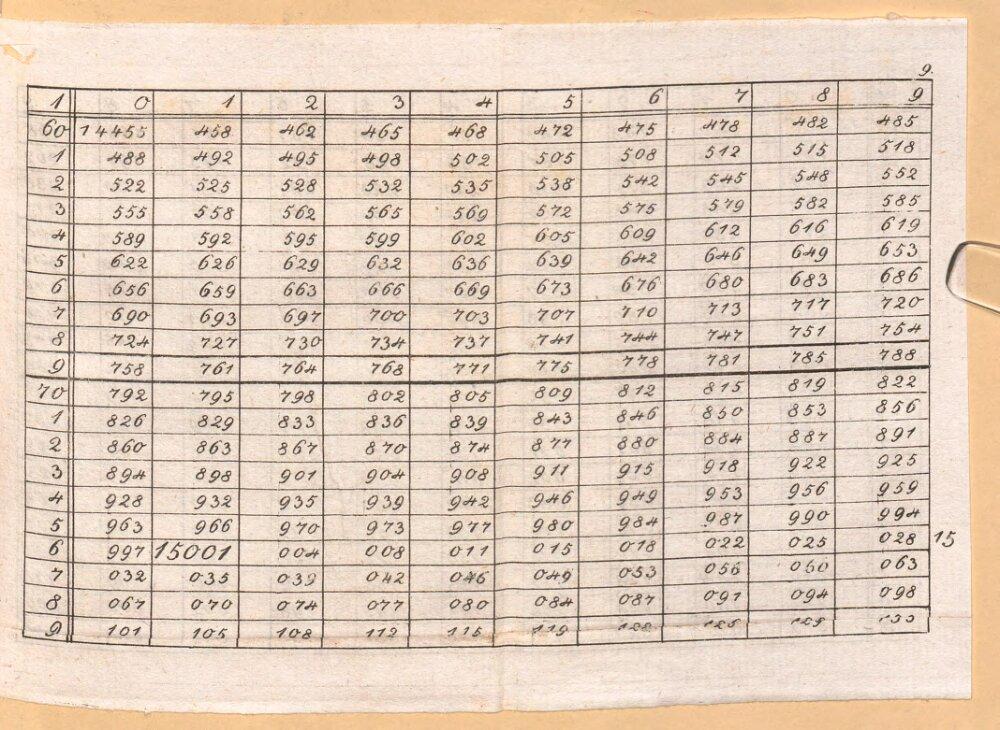 9.
1 0 1 2 3 4 5 6 7 8 9
60 14455 458 462 465 468 472 475 478 482 485
1 488 492 495 498 502 505 508 512 515 518
2 522 525 528 532 535 538 542 545 548 552
3 555 558 562 565 569 572 575 579 582 585
4 589 592 595 599 602 605 609 612 616 619
5 622 626 629 632 636 639 642 646 649 653
6 656 659 663 666 669 673 676 680 683 686
7 690 693 697 700 703 707 710 713 717 720
8 724 727 730 734 737 741 744 747 751 754
9 758 761 764 768 771 775 778 781 785 788
70 792 795 798 802 805 809 812 815 819 822
1 826 829 833 836 839 843 846 850 853 856
2 860 863 867 870 874 877 880 884 887 891
3 894 898 901 904 908 911 915 918 922 925
4 928 932 935 939 942 946 949 953 956 959
5 963 966 970 973 977 980 984 987 990 994
6 997 15001 004 008 011 015 018 022 025 028 15
7 032 035 039 042 046 049 053 056 060 063
8 067 070 074 077 080 084 087 091 094 098
9 101 105 108 112 115 119